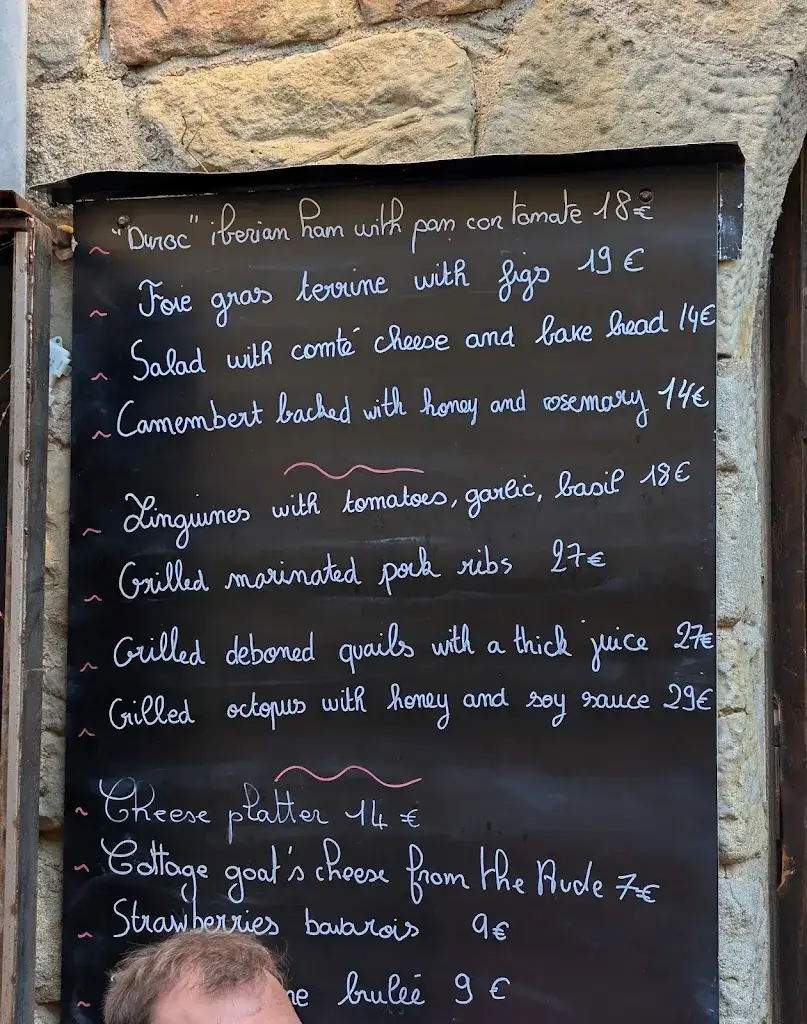 ~ "Duroc" iberian ham with pan con tomate 18€
~ Foie gras terrine with figs 19€
~ Salad with comté cheese and bake bead 14€
~ Camembert backed with honey and rosemary 14€
~ Linguines with tomatoes, garlic, basil 18€
~ Grilled marinated pork ribs 27€
~ Grilled deboned quails with a thick juice 27€
~ Grilled octopus with honey and soy sauce 29€
~ Cheese platter 14€
~ Cottage goat's cheese from the Aude 7€
~ Strawberries bavarois 9€
~ brulée 9€